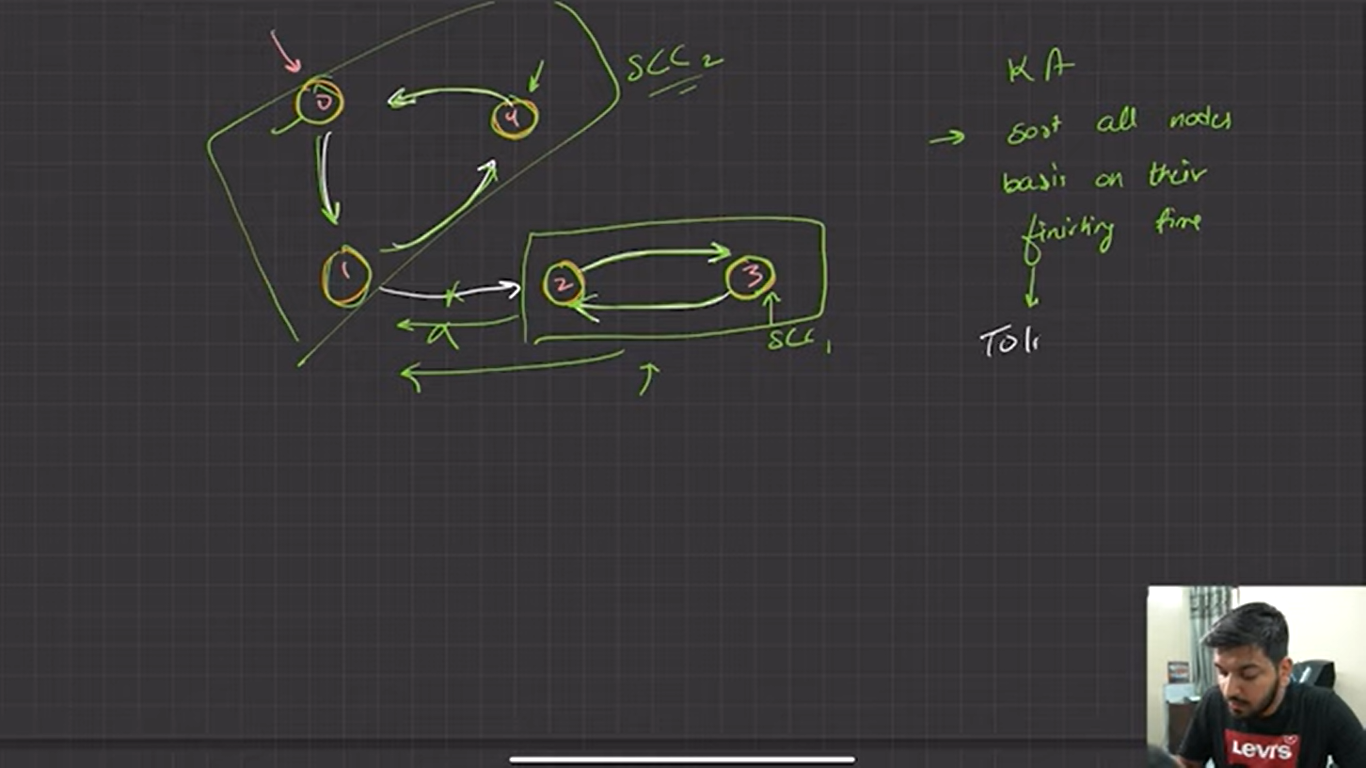 SCC2
0
4
1
2
3
SCC1
KA
→ Sort all nodes
basis on their
finishing time
LEVI'S